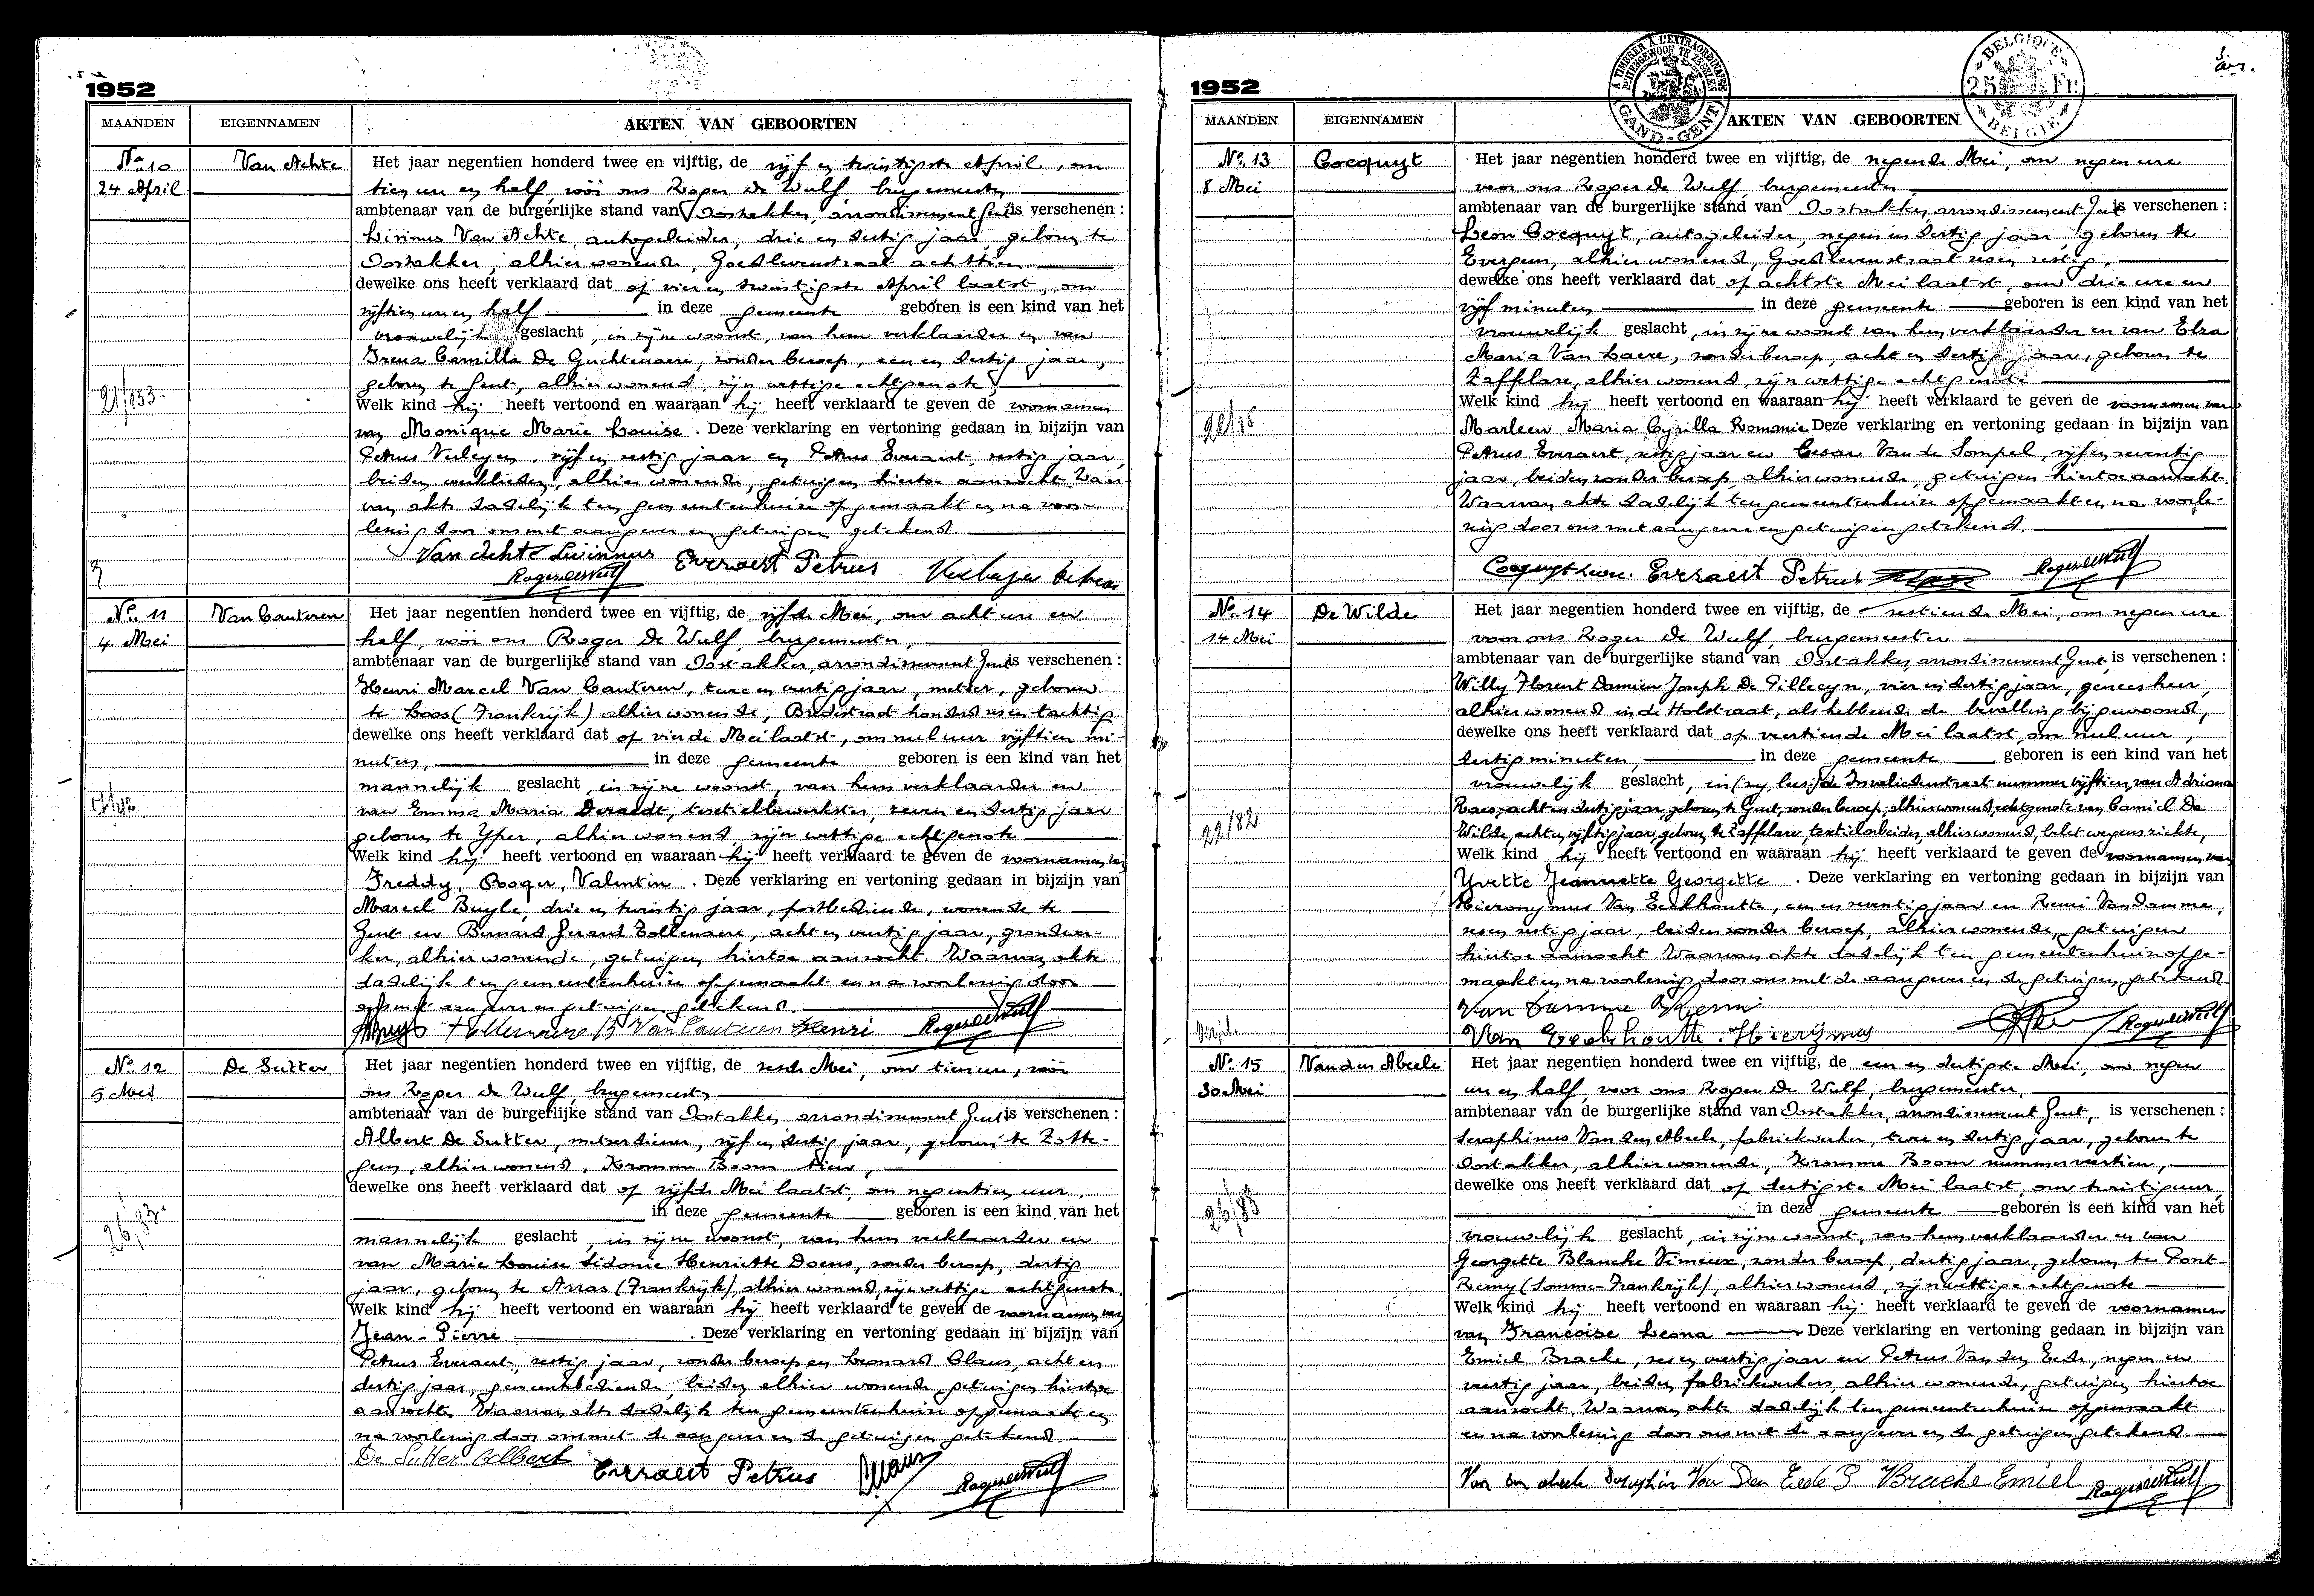 1952
MAANDEN EIGENNAMEN AKTEN VAN GEBOORTEN
No 10 Van Achte Het jaar negentien honderd twee en vijftig, de vijf en twintigste April, om
24 April tien ure en half, vóór ons Roger De Wulf, burgemeester,
ambtenaar van de burgerlijke stand van Oostakker, arrondissement Gent is verschenen :
Livinus Van Achte, autogeleider, drie en dertig jaar, geboren te
Oostakker, alhier wonende, Goedlevenstraat achttien
dewelke ons heeft verklaard dat op vier en twintigste April laatst, om
vijftien ure en half in deze gemeente geboren is een kind van het
vrouwelijk geslacht, in zijne woonst, van hem verklaarder en van
Irena Camilla De Guchtenaere, zonder beroep, een en dertig jaar,
geboren te Gent, alhier wonend, zijn wettige echtgenote
21/153.
Welk kind hij heeft vertoond en waaraan hij heeft verklaard te geven de voornamen
van Monique Marie Louise. Deze verklaring en vertoning gedaan in bijzijn van
Petrus Verleyen, vijf en zestig jaar en Petrus Everaert, zestig jaar,
beiden werklieden, alhier wonende, getuigen hiertoe aanzocht. Waar-
van akte dadelijk ten gemeentenhuize opgemaakt en na voor-
lezing door ons met aangever en getuigen getekend.
Van Achte Livinus Everaert Petrus
Roger de Wulf
No 11 Van Cauteren Het jaar negentien honderd twee en vijftig, de vijfde Mei, om acht ure en
4 Mei half, vóór ons Roger De Wulf, burgemeester,
ambtenaar van de burgerlijke stand van Oostakker, arrondissement Gent is verschenen :
Henri Marcel Van Cauteren, twee en veertig jaar, metser, geboren
te Loos (Frankrijk) alhier wonende, Bredestraat honderd zes en tachtig
dewelke ons heeft verklaard dat op vierde Mei laatst, om nul uur vijftien mi-
nuten, in deze gemeente geboren is een kind van het
mannelijk geslacht, in zijne woonst, van hem verklaarder en
van Emma Maria Deraedt, textielbewerkster, zeven en dertig jaar
geboren te Yper, alhier wonend, zijn wettige echtgenote
Welk kind hij heeft vertoond en waaraan hij heeft verklaard te geven de voornamen van
Freddy, Roger, Valentin. Deze verklaring en vertoning gedaan in bijzijn van
Marcel Buyle, drie en twintig jaar, postbediende, wonende te
Gent en Bernard Gerard Tollenaere, acht en veertig jaar, grondwer-
ker, alhier wonende, getuigen hiertoe aanzocht. Waarvan akte
dadelijk ten gemeentenhuize opgemaakt en na voorlezing door
ons met aangever en getuigen getekend.
Tollenaere B Van Cauteren Henri Roger de Wulf
No 12 De Sutter Het jaar negentien honderd twee en vijftig, de zesde Mei, om tien ure, vóór
5 Mei ons Roger De Wulf, burgemeester
ambtenaar van de burgerlijke stand van Oostakker, arrondissement Gent is verschenen :
Albert De Sutter, metserdiener, vijf en dertig jaar, geboren te Zotte-
gem, alhier wonend, Kromme Boom tien,
dewelke ons heeft verklaard dat op vijfde Mei laatst, om negentien uur,
in deze gemeente geboren is een kind van het
26/83.
mannelijk geslacht, in zijne woonst, van hem verklaarder en
van Marie Louise Sidonie Henriette Doens, zonder beroep, dertig
jaar, geboren te Arras (Frankrijk) alhier wonend, zijn wettige echtgenote
Welk kind hij heeft vertoond en waaraan hij heeft verklaard te geven de voornamen van
Jean-Pierre. Deze verklaring en vertoning gedaan in bijzijn van
Petrus Everaert, zestig jaar, zonder beroep en Leonard Claus, acht en
dertig jaar, gemeentebediende, beiden alhier wonende, getuigen hiertoe
aanzocht. Waarvan akte dadelijk ten gemeentenhuize opgemaakt en
na voorlezing door ons met de aangever en de getuigen getekend.
De Sutter Albert Everaert Petrus Claus Roger de Wulf
1952
A TIMBRER A L'EXTRAORDINAIRE
GAND-GENT
BELGIQUE
25 Fr.
BELGIE
MAANDEN EIGENNAMEN AKTEN VAN GEBOORTEN
No 13 Cocquyt Het jaar negentien honderd twee en vijftig, de negende Mei, om negen ure
8 Mei voor ons Roger De Wulf, burgemeester
ambtenaar van de burgerlijke stand van Oostakker, arrondissement Gent is verschenen :
Leon Cocquyt, autogeleider, negen en dertig jaar, geboren te
Evergem, alhier wonend, Goedlevenstraat zes en zestig,
dewelke ons heeft verklaard dat op achtste Mei laatst, om drie ure en
vijf minuten in deze gemeente geboren is een kind van het
vrouwelijk geslacht, in zijne woonst van hem verklaarder en van Elza
Maria Van Laere, zonder beroep, acht en dertig jaar, geboren te
Zaffelare, alhier wonend, zijn wettige echtgenote
Welk kind hij heeft vertoond en waaraan hij heeft verklaard te geven de voornamen van
Marleen Maria Cyrilla Romanie Deze verklaring en vertoning gedaan in bijzijn van
Petrus Everaert, zestig jaar en Cesar Van de Sompel, vijf en zeventig
jaar, beiden zonder beroep, alhier wonende, getuigen hiertoe aanzocht.
Waarvan akte dadelijk ten gemeentenhuize opgemaakt en na voorle-
zing door ons met aangever en getuigen getekend.
Cocquyt Leon. Everaert Petrus Roger de Wulf
No 14 De Wilde Het jaar negentien honderd twee en vijftig, de zestiende Mei, om negen ure
14 Mei voor ons Roger De Wulf, burgemeester
ambtenaar van de burgerlijke stand van Oostakker, arrondissement Gent, is verschenen :
Willy Florent Damien Joseph De Gillecyn, vier en dertig jaar, geneesheer,
alhier wonend in de Holstraat, als hebbende de bevalling bijgewoond,
dewelke ons heeft verklaard dat op veertiende Mei laatst, om nul uur,
dertig minuten, in deze gemeente geboren is een kind van het
vrouwelijk geslacht, in (zy, lees:) de Invalidenstraat nummer vijftien, van Adriana
Raes, acht en dertig jaar, geboren te Gent, zonder beroep, alhier wonend, echtgenote van Camiel De
22/82
Wilde, acht en vijftig jaar, geboren te Zaffelare, textielarbeider, alhier wonend, belet wegens ziekte,
Welk kind hij heeft vertoond en waaraan hij heeft verklaard te geven de voornamen van
Yvette Jeannette Georgette. Deze verklaring en vertoning gedaan in bijzijn van
Hieronymus Van Eeckhoutte, een en zeventig jaar en Remi Van Damme,
zes en zestig jaar, beiden zonder beroep, alhier wonende, getuigen
hiertoe aanzocht. Waarvan akte dadelijk ten gemeentenhuize opge-
maakt en na voorlezing door ons met de aangever en de getuigen getekend.
Van Damme Remi
Van Eeckhoutte Hierÿmus Roger de Wulf
No 15 Van den Abeele Het jaar negentien honderd twee en vijftig, de een en dertigste Mei, om negen
30 Mei ure en half, voor ons Roger De Wulf, burgemeester,
ambtenaar van de burgerlijke stand van Oostakker, arrondissement Gent, is verschenen :
Seraphinus Van den Abeele, fabriekwerker, twee en dertig jaar, geboren te
Oostakker, alhier wonende, Kromme Boom nummer veertien,
dewelke ons heeft verklaard dat op dertigste Mei laatst, om twintig uur,
in deze gemeente geboren is een kind van het
26/85
vrouwelijk geslacht, in zijne woonst, van hem verklaarder en van
Georgette Blanche Vimeux, zonder beroep, dertig jaar, geboren te Pont-
Remy (Somme-Frankrijk), alhier wonend, zijn wettige echtgenote
Welk kind hij heeft vertoond en waaraan hij heeft verklaard te geven de voornamen
van Francoise Leona Deze verklaring en vertoning gedaan in bijzijn van
Emiel Bracke, zes en veertig jaar en Petrus Van den Eede, negen en
veertig jaar, beiden fabriekwerkers, alhier wonende, getuigen hiertoe
aanzocht. Waarvan akte dadelijk ten gemeentenhuize opgemaakt
en na voorlezing door ons met de aangever en de getuigen getekend
Van den Abeele Seraphin Van Den Eede P Bracke Emiel Roger de Wulf